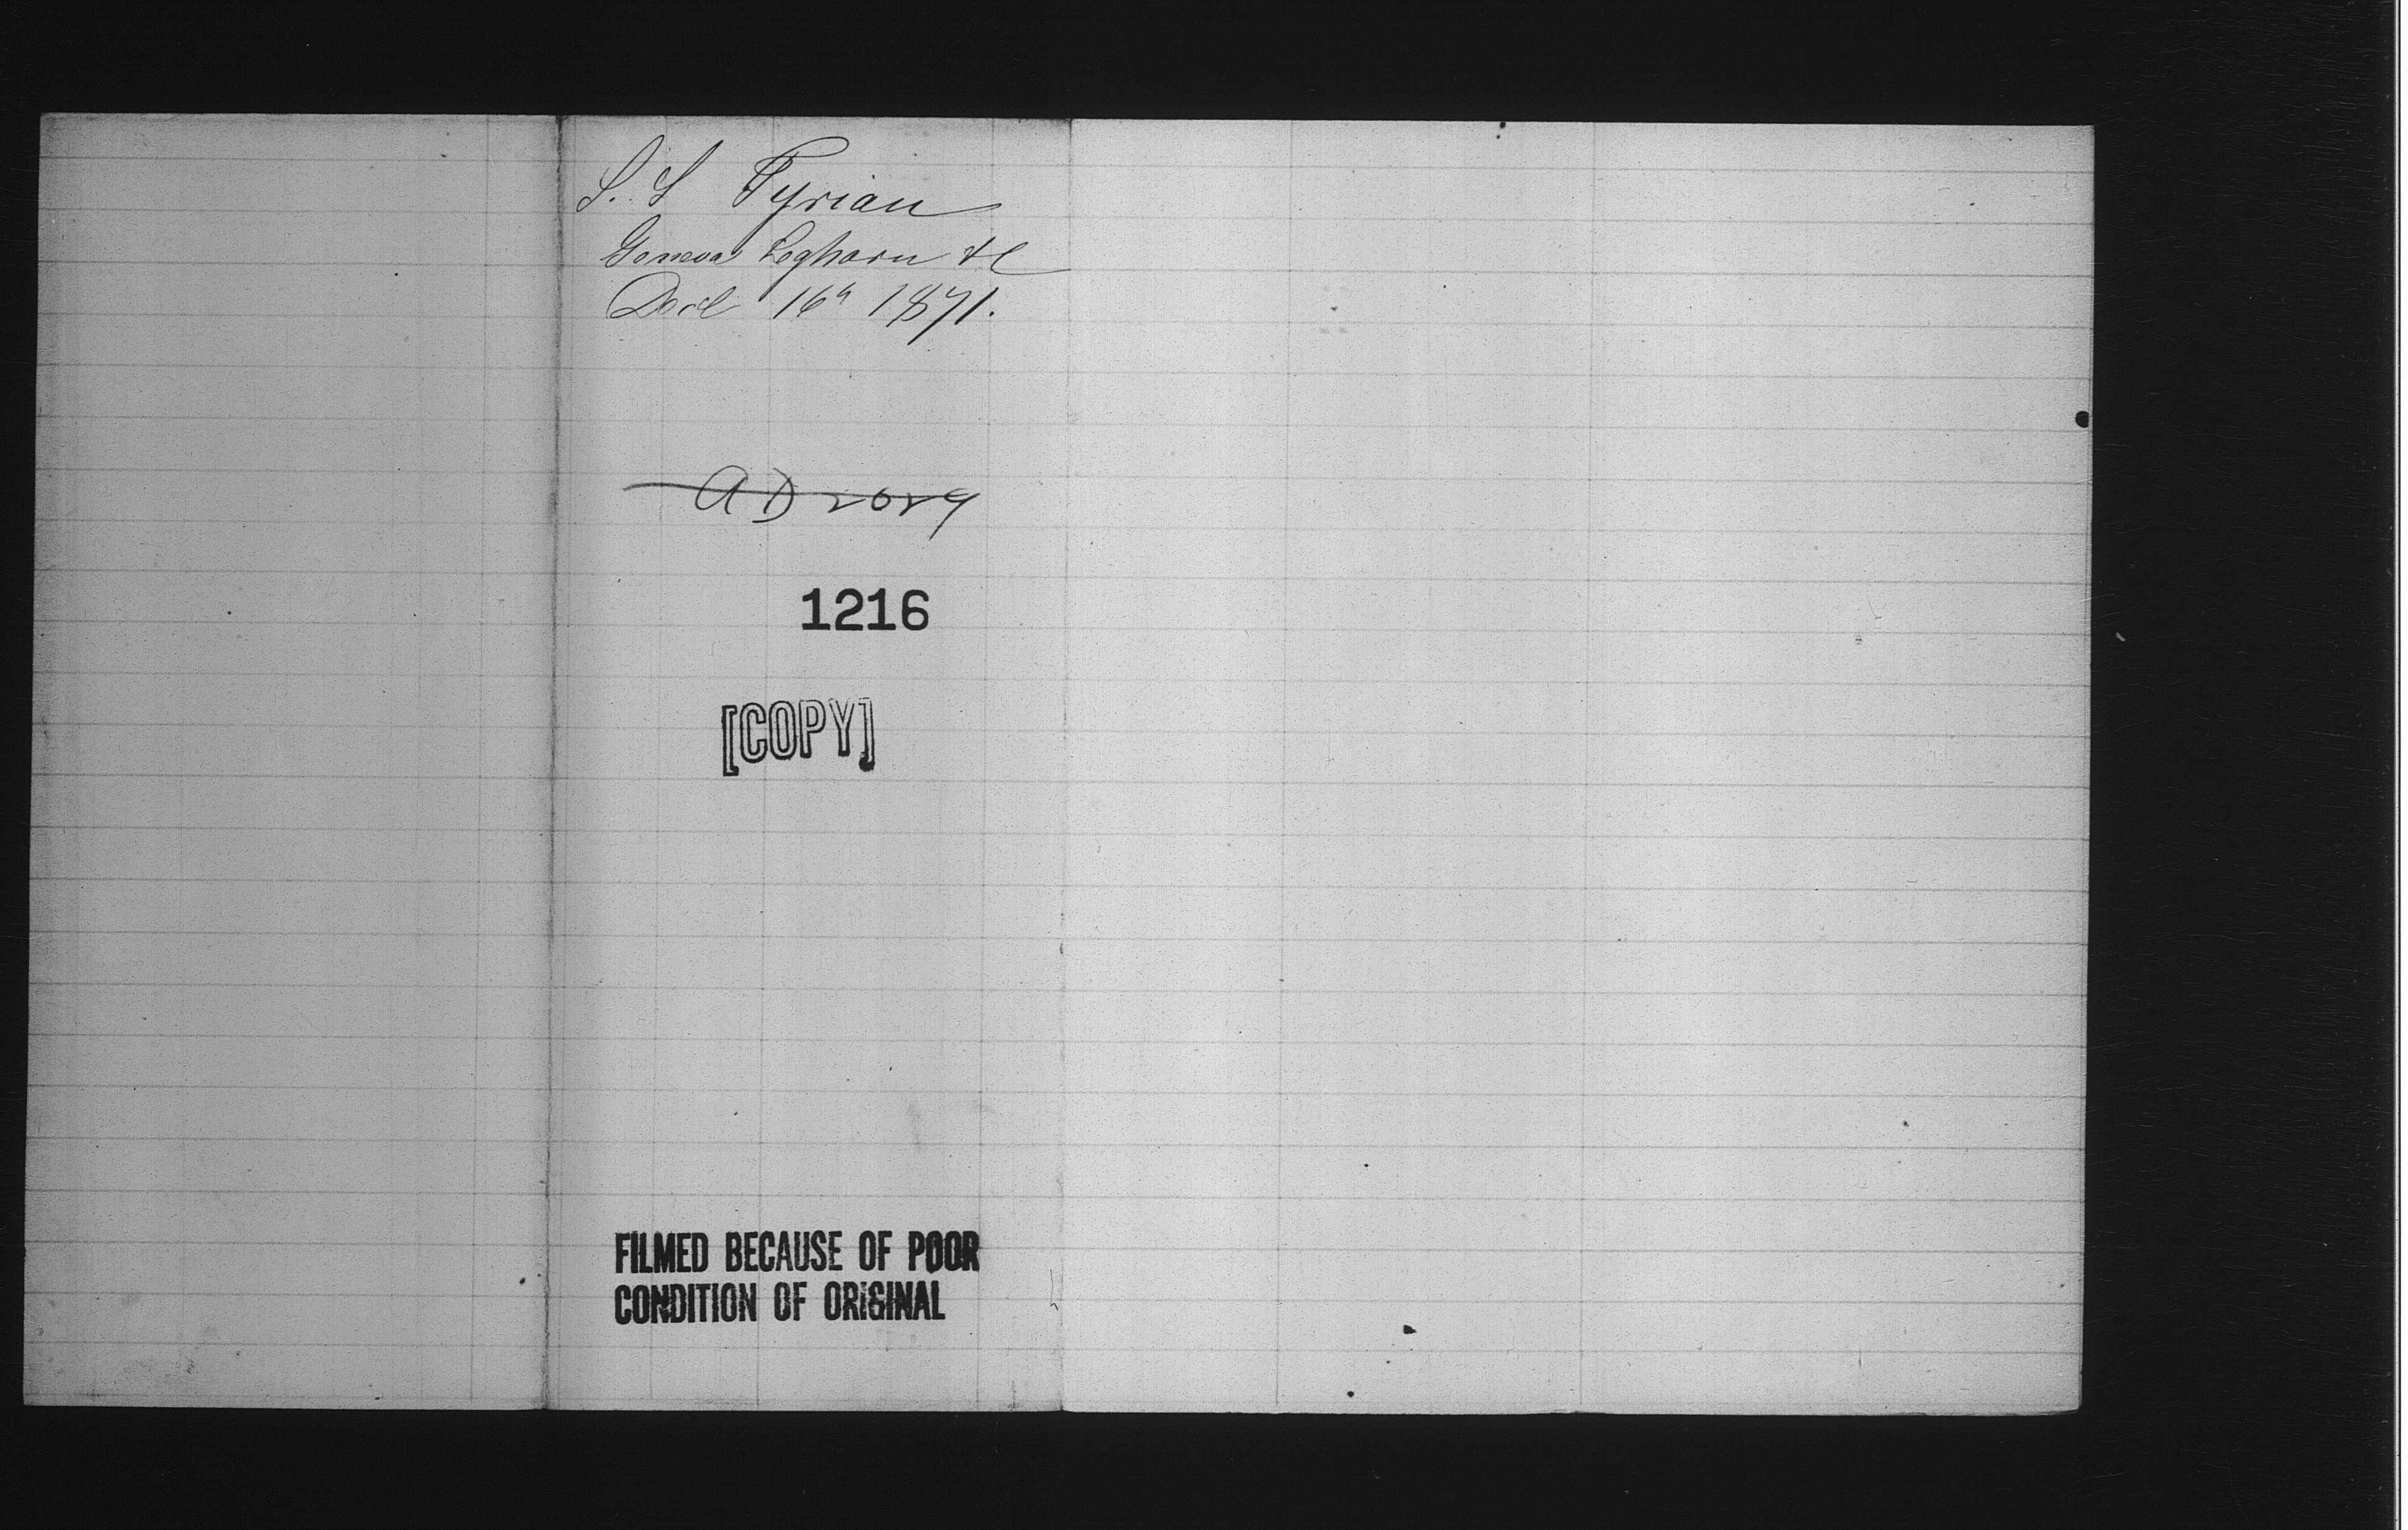 S. S Tyrian
Genoa Leghorn &c
Decr 16h 1871.
AD 2029
1216
[COPY]
FILMED BECAUSE OF POOR
CONDITION OF ORIGINAL